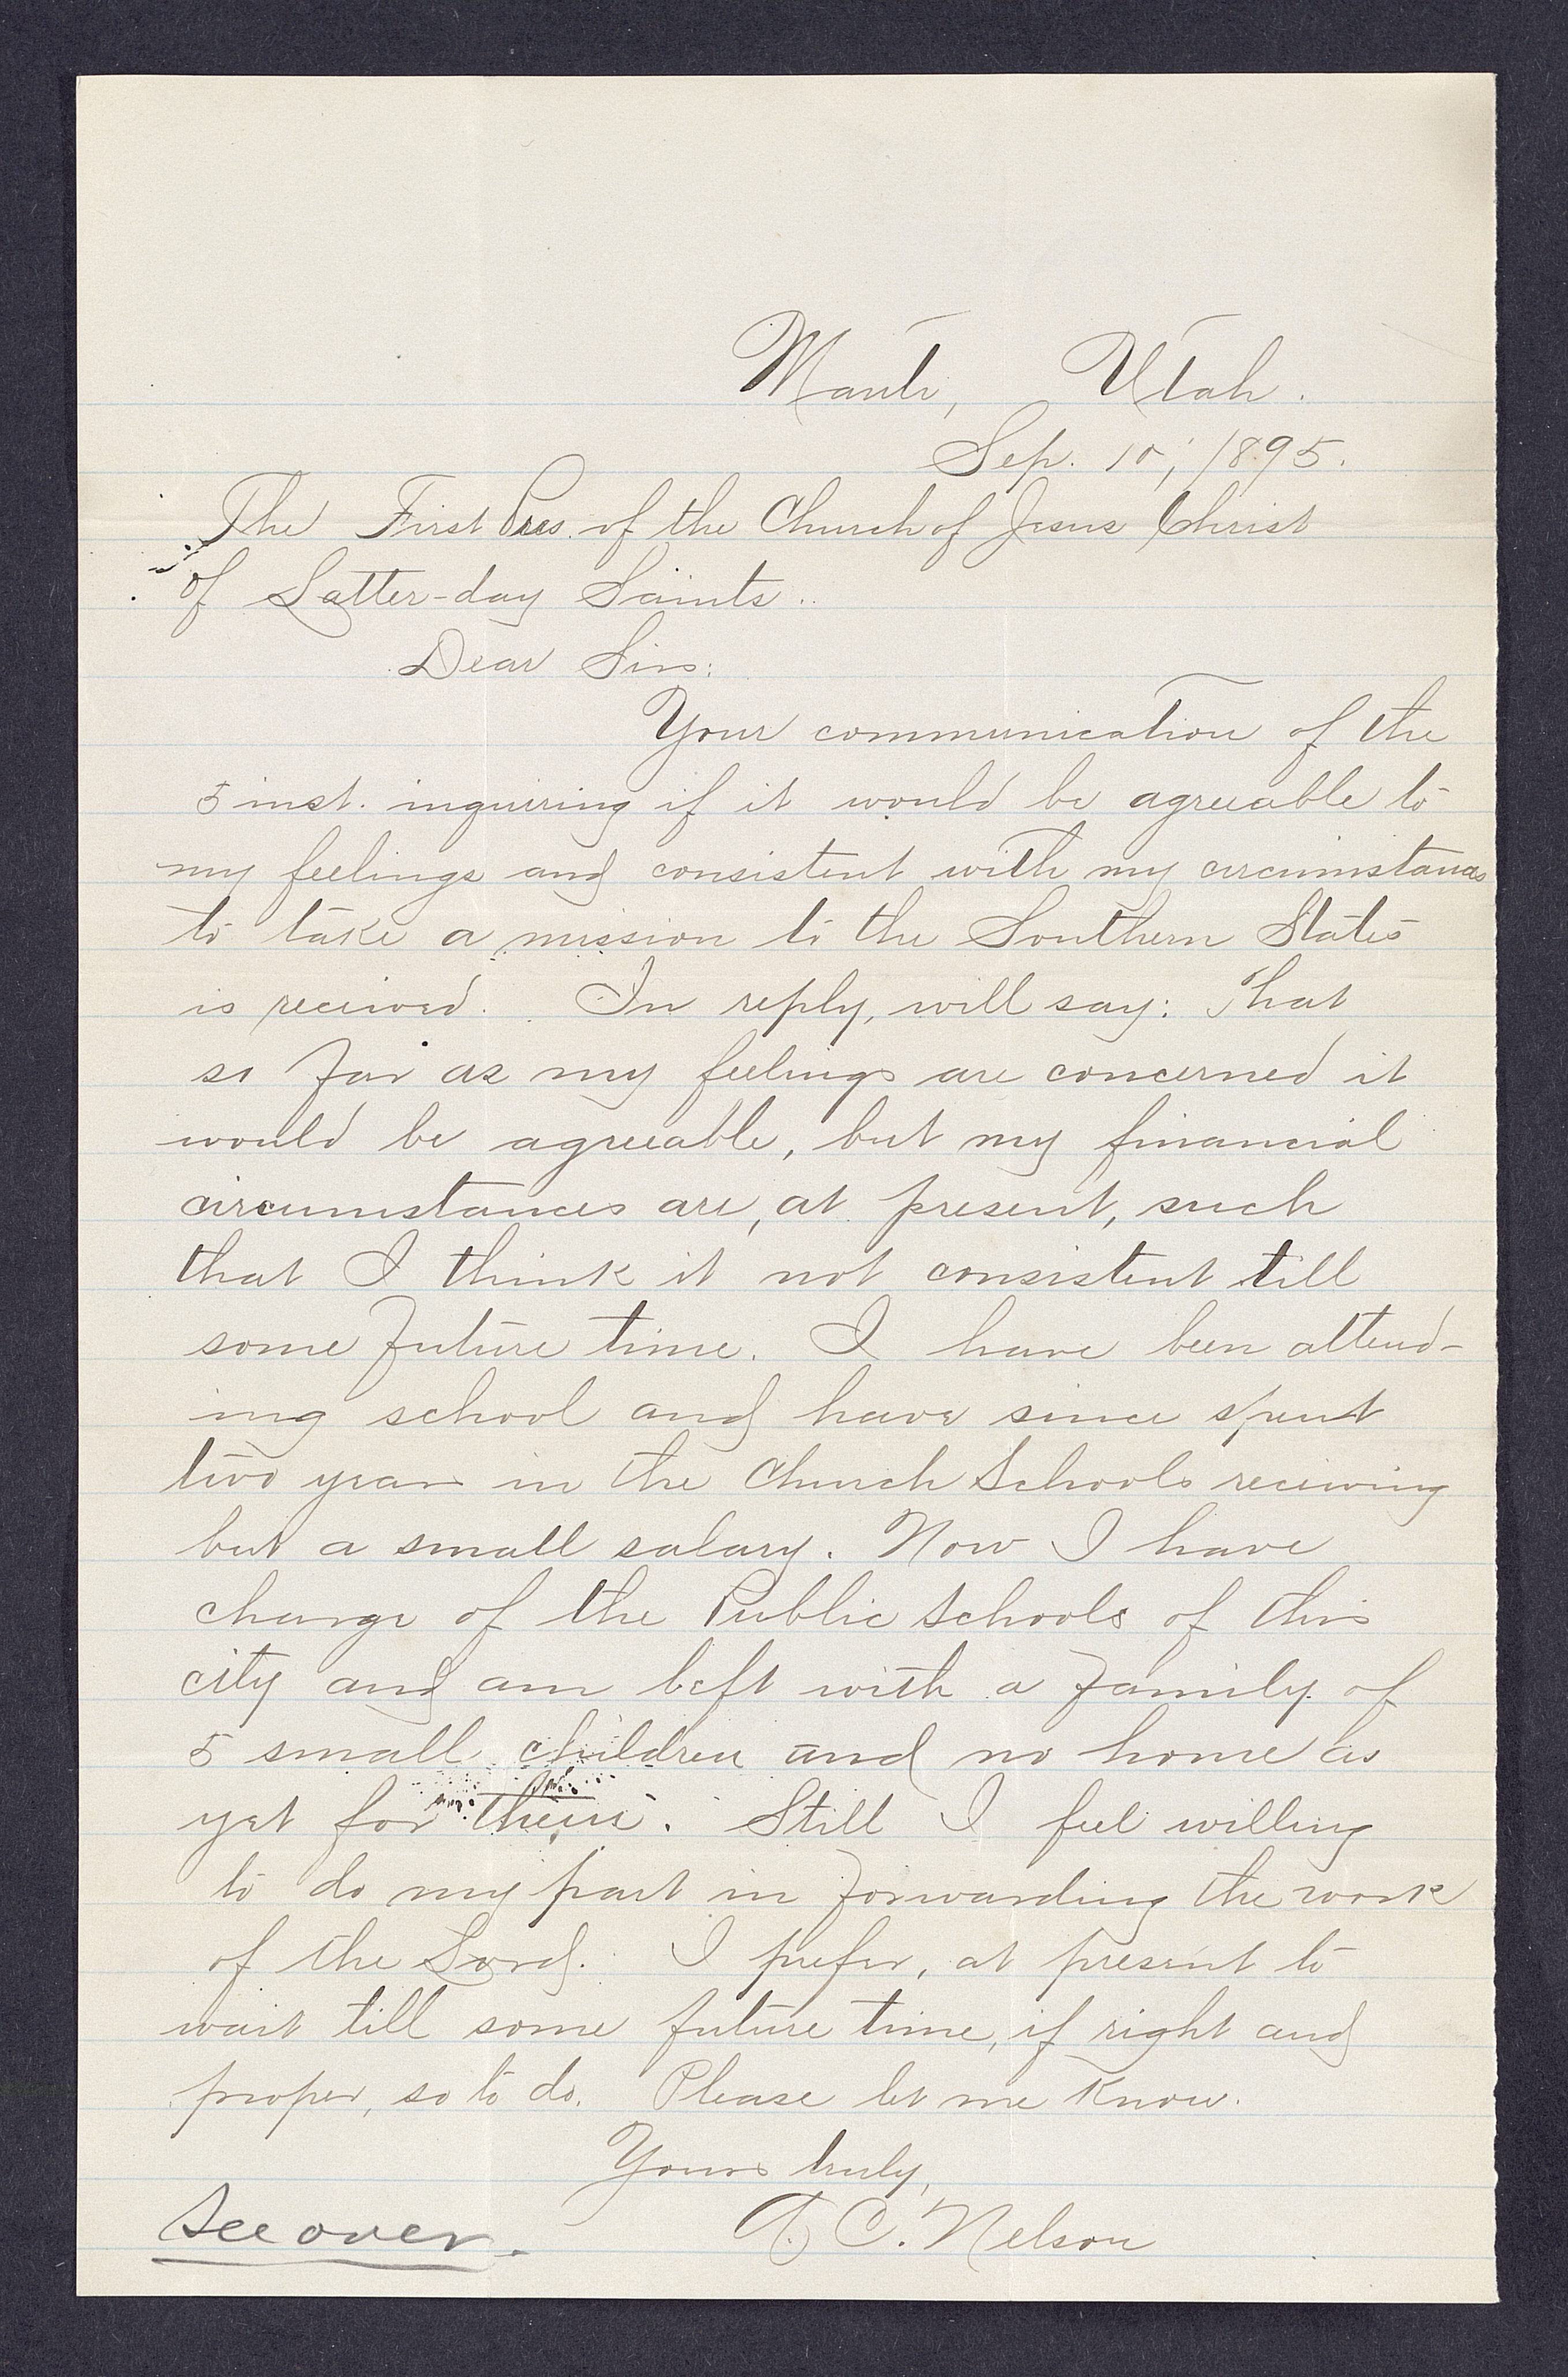 Manti, Utah.
Sep. 10, 1895.
The First Pres. of the Church of Jesus Christ
of Latter-day Saints.
Dear Sirs:
Your communication of the
5 inst. inquiring if it would be agreeable to
my feelings and consistent with my circumstances
to take a mission to the Southern States
is received. In reply, will say: That
so far as my feelings are concerned it
would be agreeable, but my financial
circumstances are, at present, such
that I think it not consistent till
some future time. I have been attend-
ing school and have since spent
two years in the Church Schools receiving
but a small salary. Now I have
charge of the Public Schools of this
city and am left with a family of
5 small children and no home as
yet for them. Still I feel willing
to do my part in forwarding the work
of the Lord. I prefer, at present to
wait till some future time, if right and
proper, so to do. Please let me know.
Yours truly,
A. C. Nelson
See over.